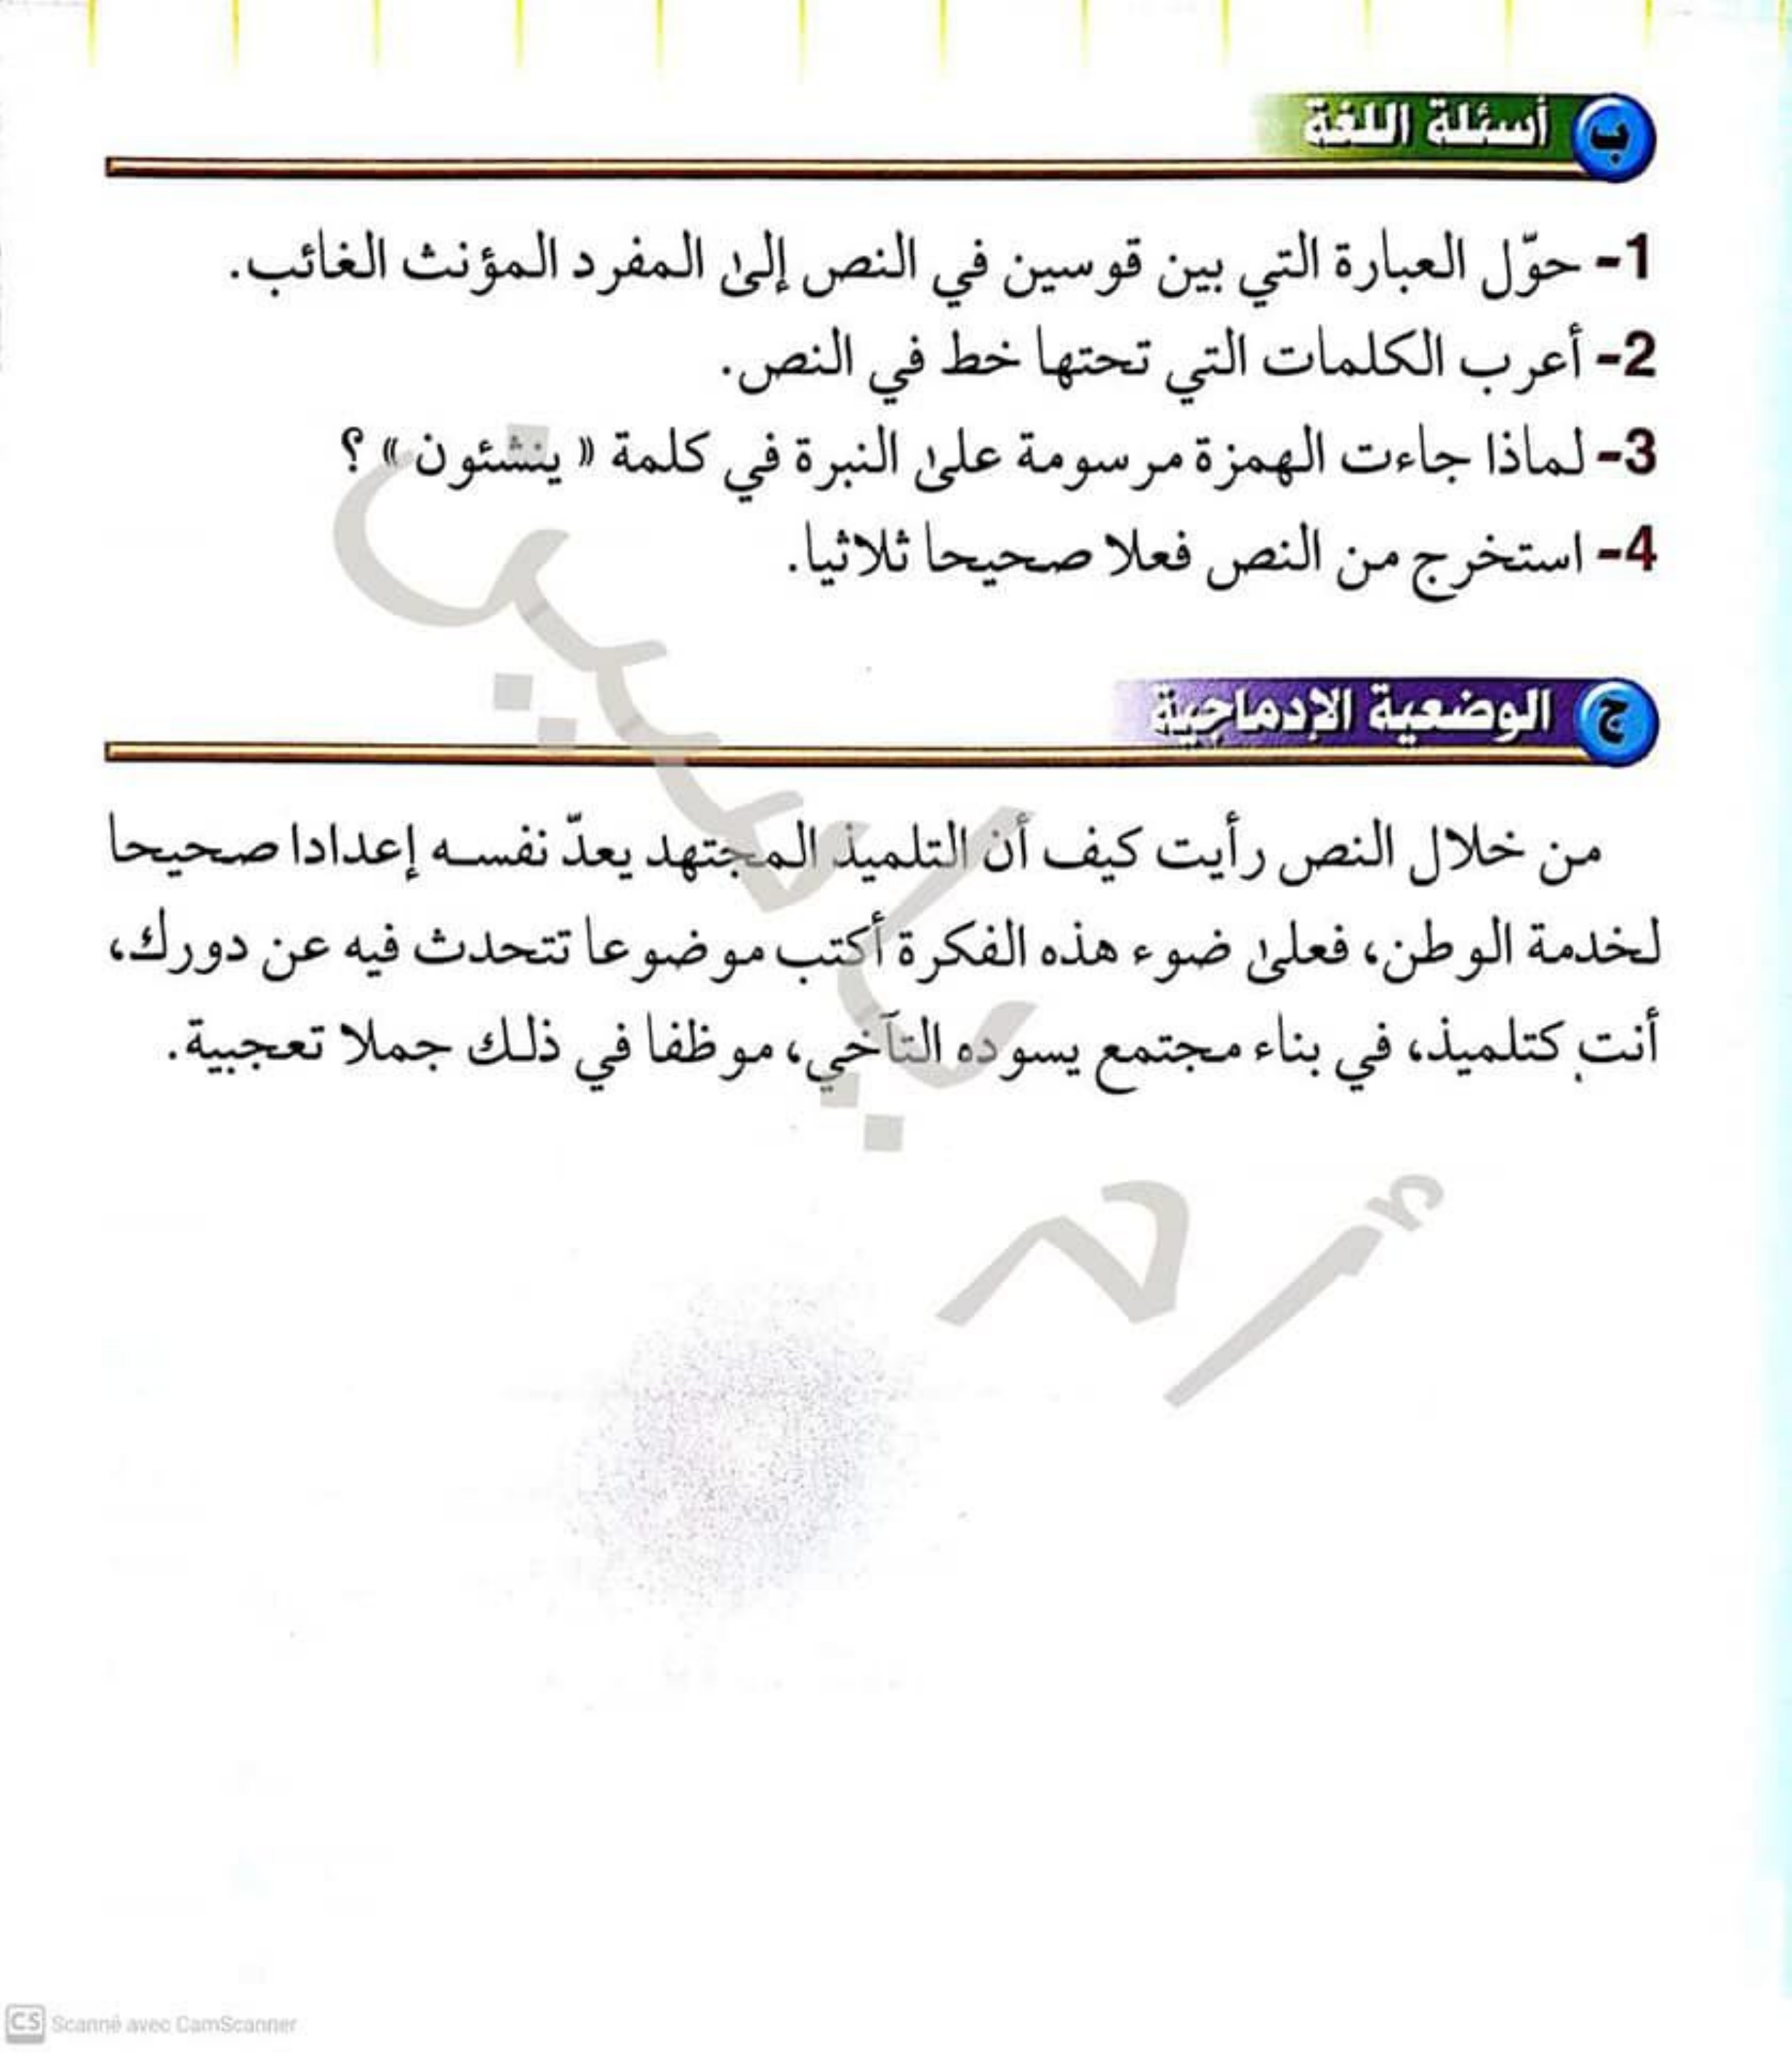 ب أسئلة اللغة
1- حوّل العبارة التي بين قوسين في النص إلى المفرد المؤنث الغائب.
2- أعرب الكلمات التي تحتها خط في النص.
3- لماذا جاءت الهمزة مرسومة على النبرة في كلمة « ينشئون » ؟
4- استخرج من النص فعلا صحيحا ثلاثيا.
ج الوضعية الإدماجية
من خلال النص رأيت كيف أن التلميذ المجتهد يعدّ نفسه إعدادا صحيحا
لخدمة الوطن، فعلى ضوء هذه الفكرة أكتب موضوعا تتحدث فيه عن دورك،
أنت كتلميذ، في بناء مجتمع يسوده التآخي، موظفا في ذلك جملا تعجبية.
CS Scanné avec CamScanner